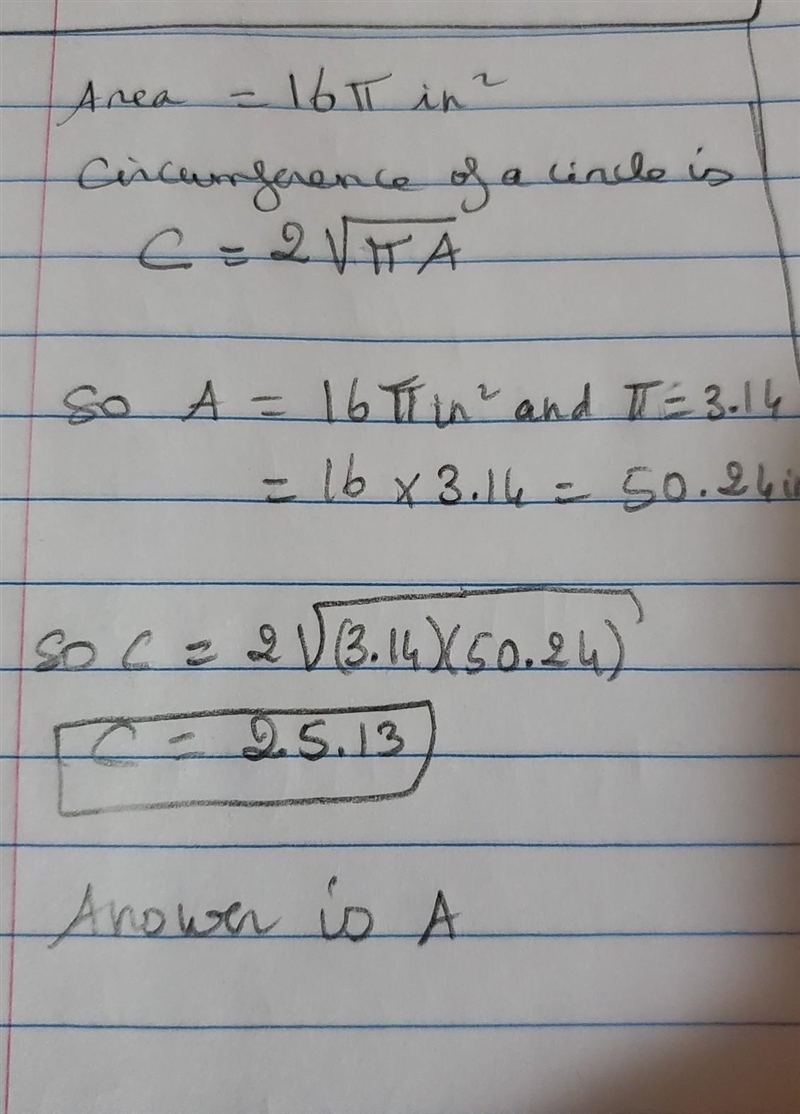 Area = 16π in²
Circumference of a circle is
C = 2√πA
So A = 16π in² and π = 3.14
= 16 × 3.14 = 50.24 i
So C = 2√(3.14)(50.24)
C = 25.13
Answer is A